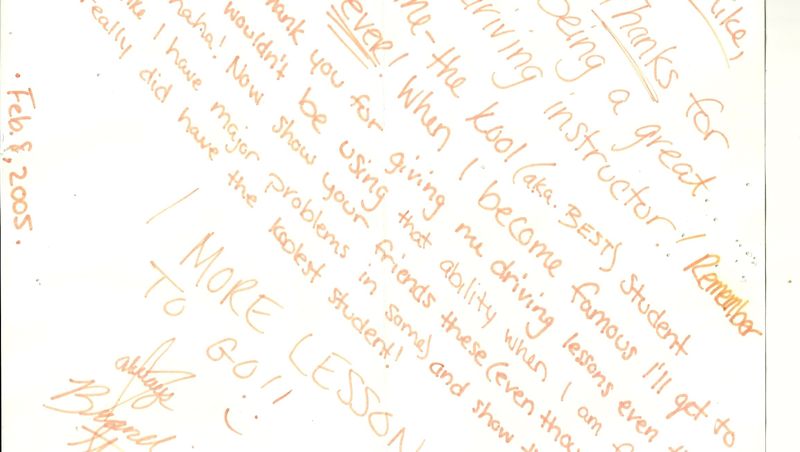 ike,
Thanks for
being a great
driving instructor! Remember
me - the kool (aka. BEST) student
ever! When I become famous I'll get to
thank you for giving me driving lessons even
wouldn't be using that ability when I am
haha! Now show your friends these (even thou
like I have major problems in some) and show
really did have the koolest student!
1 MORE LESSON
TO GO!! :)
always
Feb. 8, 2005.